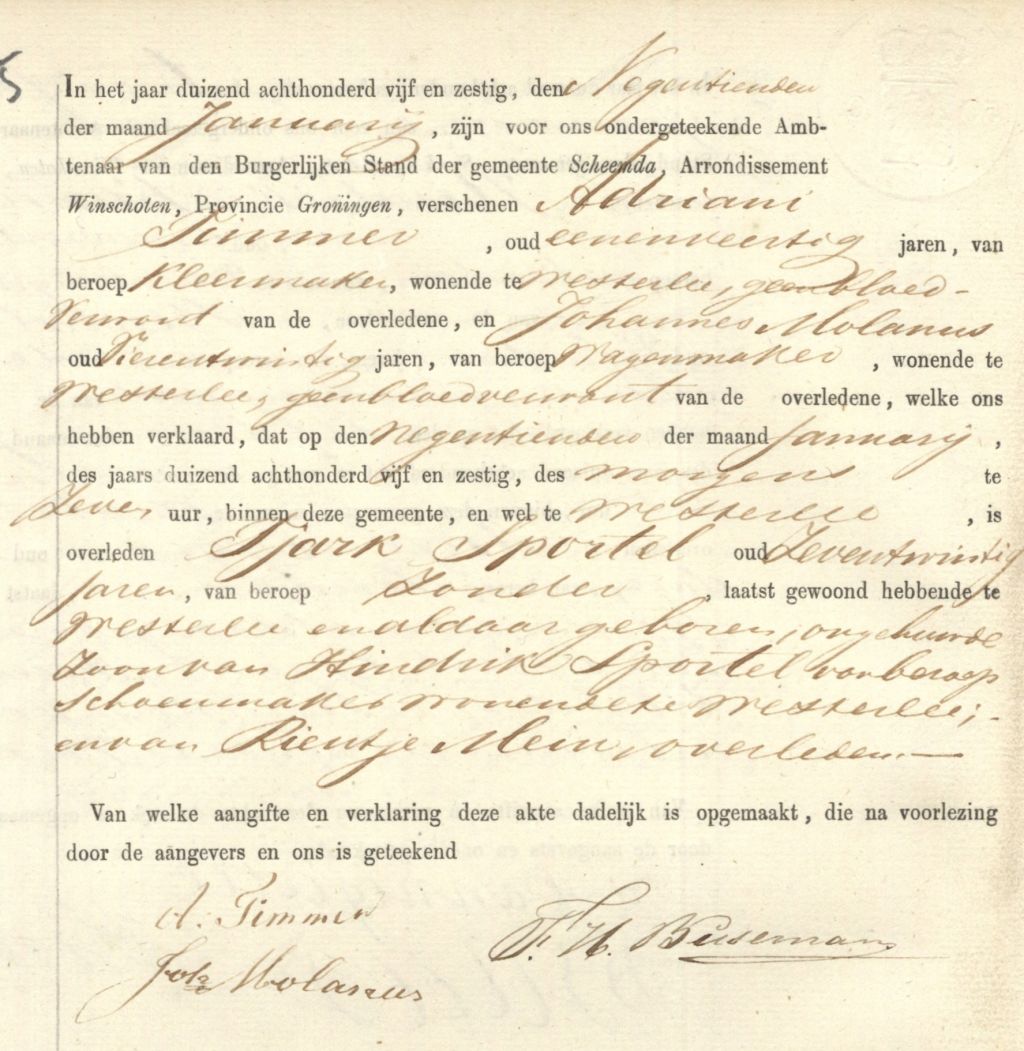 5
In het jaar duizend achthonderd vijf en zestig, den Negentienden
der maand Januarij, zijn voor ons ondergeteekende Amb-
tenaar van den Burgerlijken Stand der gemeente Scheemda, Arrondissement
Winschoten, Provincie Groningen, verschenen Adriani
Timmer, oud eenenveertig jaren, van
beroep Kleermaker, wonende te Westerlee, geenbloed-
verwant van de overledene, en Johannes Molanus
oud Vierentwintig jaren, van beroep Wagenmaker, wonende te
Westerlee, geenbloedverwant van de overledene, welke ons
hebben verklaard, dat op den Negentienden der maand Januarij,
des jaars duizend achthonderd vijf en zestig, des morgens te
Zeven uur, binnen deze gemeente, en wel te Westerlee, is
overleden Tjark Sportel oud Zeventwintig
jaren, van beroep Zonder, laatst gewoond hebbende te
Westerlee en aldaar geboren, ongehuwde
Zoon van Hindrik Sportel van beroep
Schoenmaker wonende te Westerlee;
en van Rientje Mein, overleden.—
Van welke aangifte en verklaring deze akte dadelijk is opgemaakt, die na voorlezing
door de aangevers en ons is geteekend
A. Timmer
F. H. Buseman
Johs Molanus